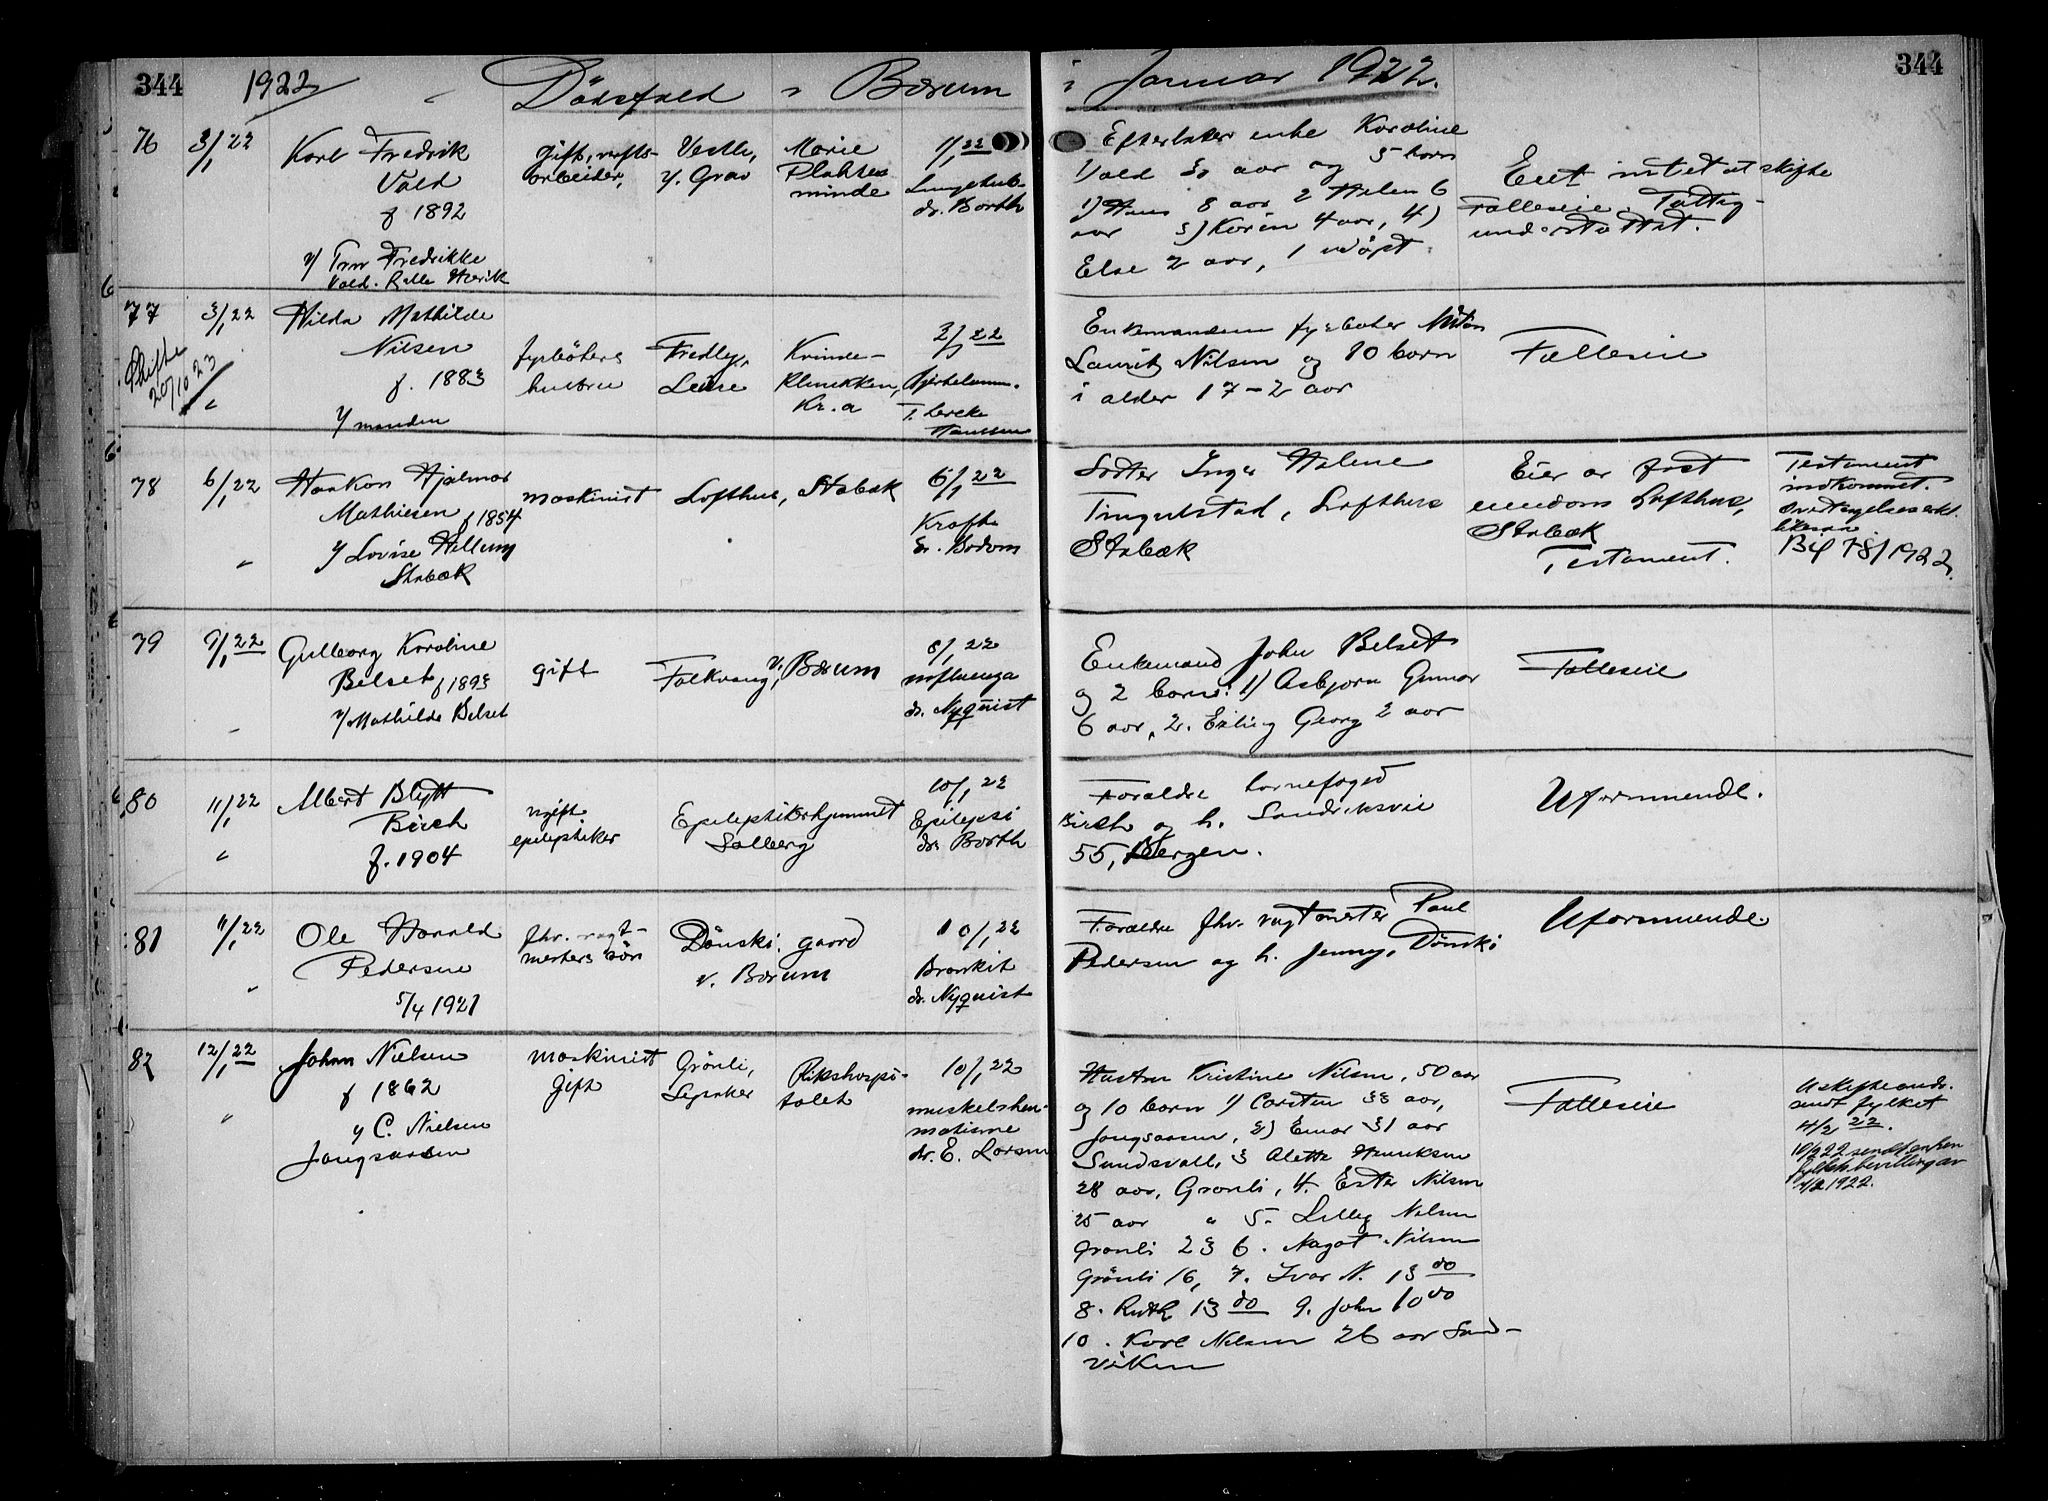 344 1922 Dödsfald i Bærum i Januar 1922. 344
76 3/1 22 Karl Fredrik
Vold
f 1892
v/ Fru Fredrikke
Vold. Høvik
gift,
arbeider,
Vestli,
v. Grav
Marie
Plahtes
minde
1/1 22
dr. Borth
Efterlater enke Karoline
Vold 30 aar og 5 barn
1) Hans 8 aar 2 Helen 6
aar 3) Karin 4 aar, 4)
Else 2 aar, 1 udöpt.
Eiet intet at skifte
Fælleseie. Fattig-
understøttet.
77 3/1 22 Hilda Mathilde
Nilsen
f. 1883
v/ manden
Skifte
20/10 23
fyrbøters
hustru
Fredly,
Kvinde-
klinikken,
Kr.a
2/1 22
Enkemanden fyrbøter
Laurits Nilsen og 10 barn
i alder 17-2 aar
Fælleseie
78 6/1 22 Haakon Hjalmar
Mathiesen f 1854
v/ Lovise Hellum
Stabæk
maskinist
Lofthus, Stabæk
5/1 22
Kræft
dr. Bodom
Søster Inga Halene
Tingelstad, Lofthus
Stabæk
Eier av fast
eiendom Lofthus,
Stabæk
Testament.
Testament
indkommet.
likesaa
Bil 78/1922.
79 9/1 22 Gulborg Karoline
Belset f 1893
v/ Mathilde Belset
gift
Falkvang, v. Bærum
8/1 22
influenza
dr. Nyquist
Enkemand John Belset
og 2 barn: 1) Asbjørn Gunnar
6 aar, 2. Erling Georg 2 aar
Fælleseie
80 11/1 22 Albert Blytt
Birch
f. 1904
ugift
epileptiker
Epileptikerhjemmet
Solberg
10/1 22
Epilepsi
dr. Borth
Forældre havnefoged
Birch og h. Sandviksvei
55, Bergen.
Uformuende.
81 11/1 22 Ole Harald
Pedersen
5/4 1921
fhv. vagt-
mesters søn
Dönski gaard
v. Bærum
10/1 22
Bronkit
dr. Nyquist
Forældre fhv. vagtmester Paul
Pedersen og h. Jenny, Dönski
Uformuende.
82 12/1 22 Johan Nielsen
f 1862
v/ C. Nielsen
Jongsaasen
maskinist
gift
Grönli,
Lysaker
Rikshospi-
talet
10/1 22
muskelrheu-
matisme
dr. E. Larsen
Hustru Kristine Nilsen, 50 aar
og 10 barn 1) Carsten 33 aar,
Jongsaasen, 2) Einar 31 aar
Sundsvall, 3 Alette Henriksen
28 aar, Grønli, 4. Ester Nilsen
25 aar " 5. Lilly Nilsen
Grønli 23 6. Magot Nilsen
Grönli 16, 7. Ivar N. 13 do
8. Ruth 13 do 9. John 10 do
10. Karl Nilsen 26 aar Sand-
viken
Fælleseie
Uskifteands.
sendt fylket
4/2 22.
10/2 22 sendt enken
fylkets bevilling av
1922.